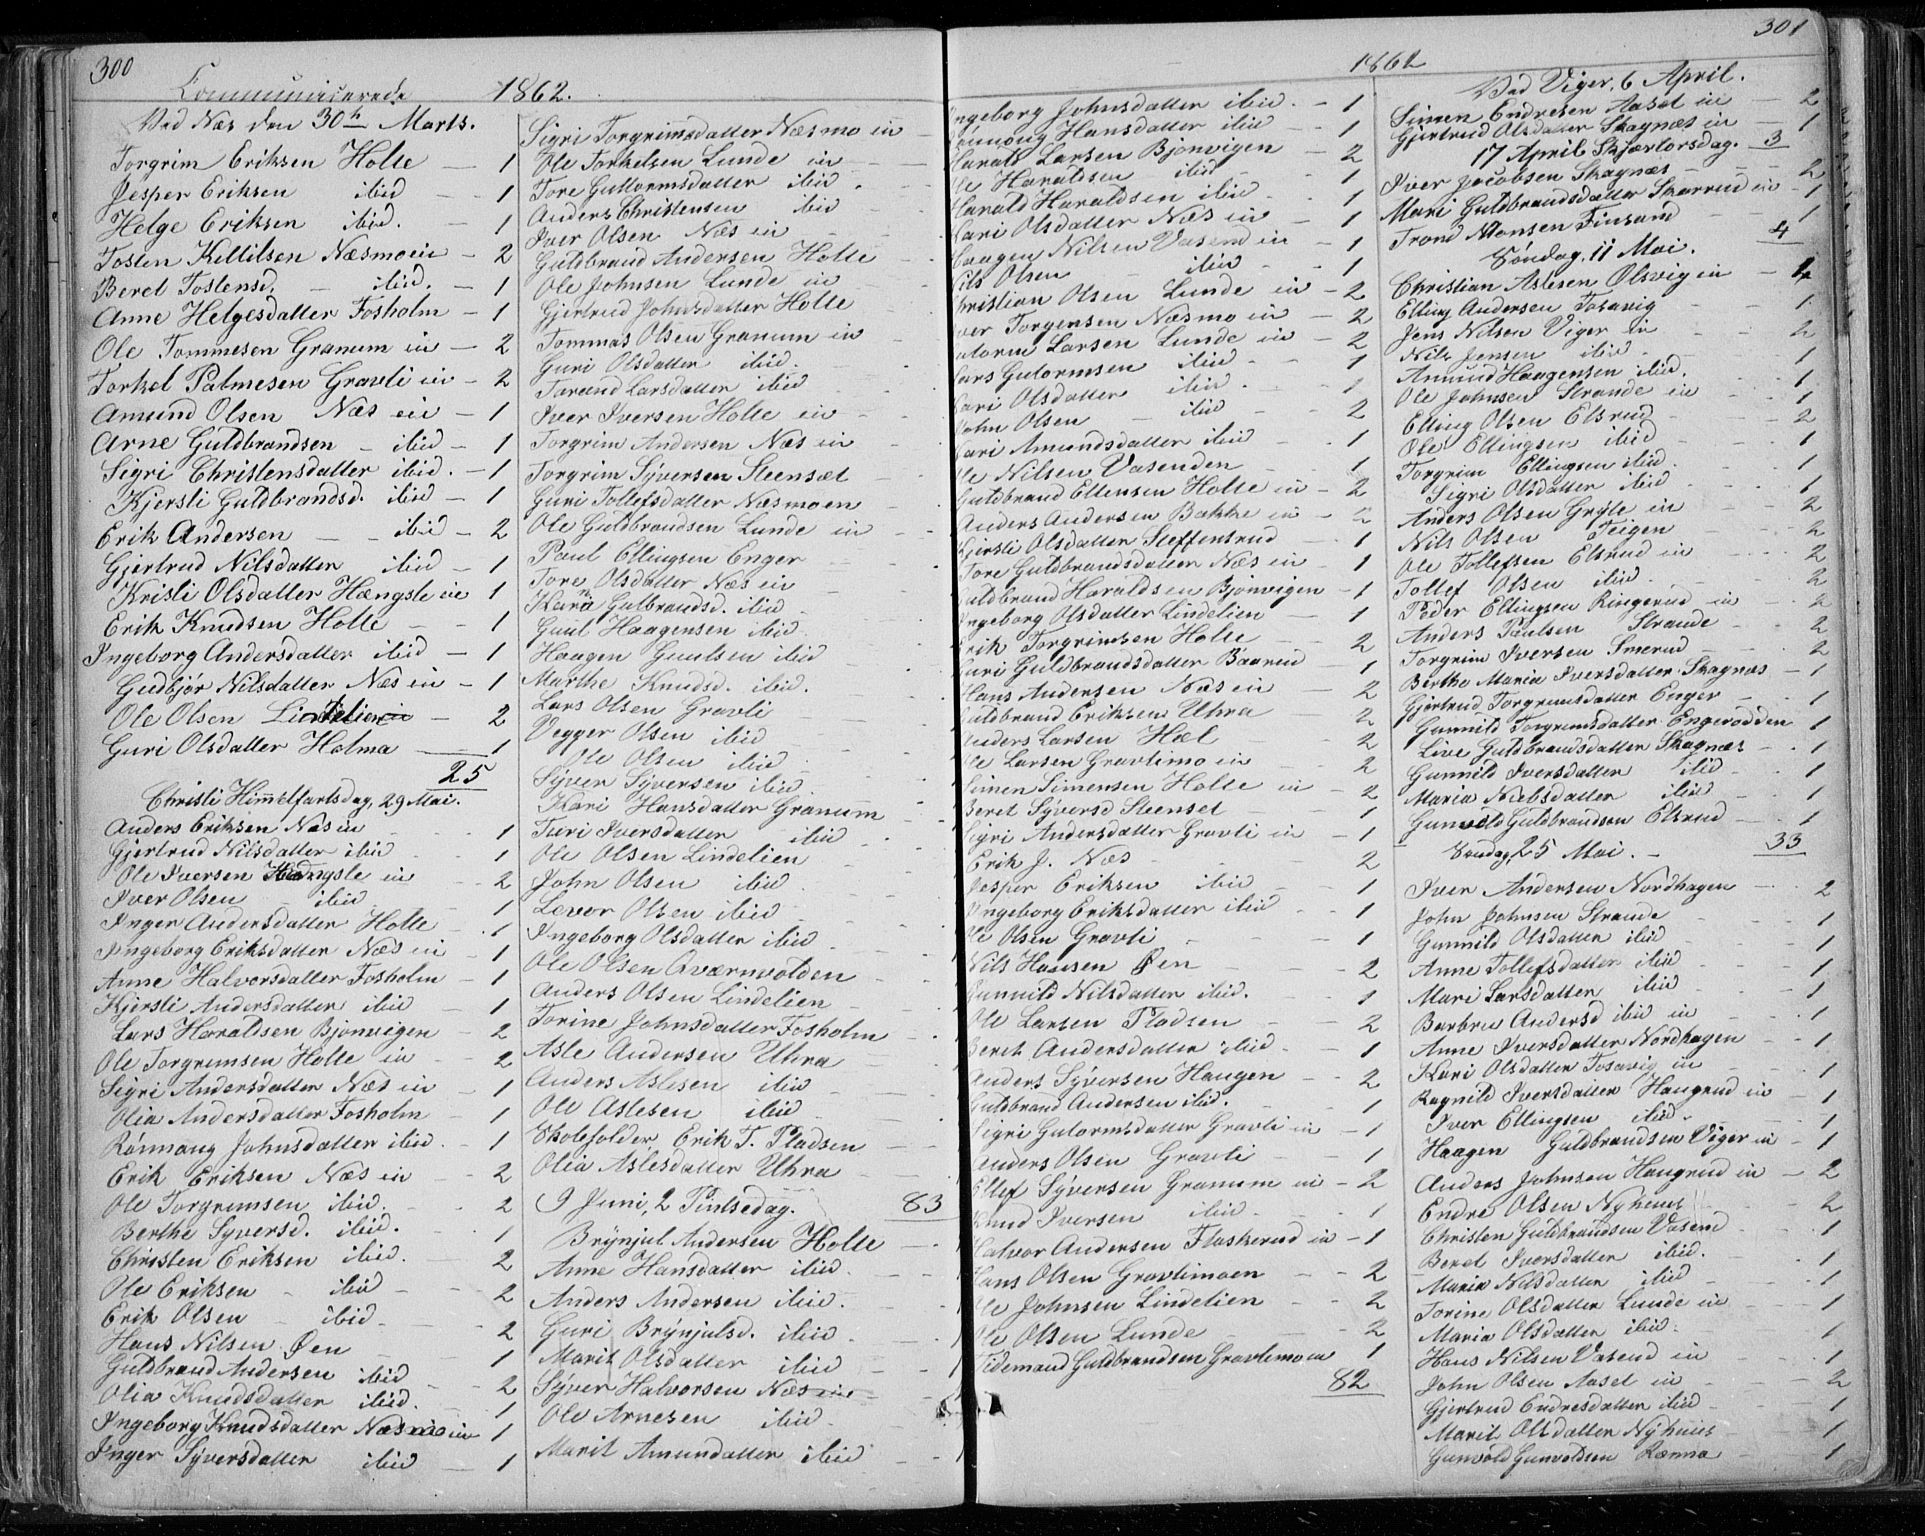 300
Communicerede 1862.
Ved Næs den 30h Marts.
Torgrim Eriksen Holte — 1
Jesper Eriksen ibid — 1
Helge Eriksen ibid. — 1
Tosten Kittilsen Næsmoein — 2
Beret Tostensd. ibid. — 1
Anne Helgesdatter Fosholm — 1
Ole Tommesen Granum ein — 2
Torkel Palmesen Gravli ein — 2
Amund Olsen Næs ein — 1
Arne Guldbrandsen — ibid — 1
Sigri Christensdatter ibid. — 1
Kjersti Guldbrandsd. ibid — 1
Erik Andersen — ibid — 2
Gjertrud Nilsdatter ibid — 1
Kristi Olsdatter Hængsle ein 1
Erik Knudsen Holte — 1
Ingeborg Andersdatter ibid — 1
Gudbjør Nilsdatter Næs ein — 1
Ole Olsen Lindelien — 2
Guri Olsdatter Holma — 1
25
Christi Himmelfartsdag, 29 Mai.
Anders Eriksen Næs in 1
Gjertrud Nilsdatter ibid 1
Ole Iversen Hængsle in 2
Iver Olsen ibid 1
Inger Andersdatter Holte 1
Ingeborg Eriksdatter Næs in 1
Anne Halvorsdatter Fosholm 1
Kjersti Andersdatter ibid 1
Lars Haraldsen Bjonvigen 2
Ole Torgrimsen Holte in 2
Sigri Andersdatter Næs in 1
Olia Andersdatter Fosholm 1
Rønnaug Johnsdatter ibid. 1
Erik Eriksen Næs in 2
Ole Torgrimsen ibid. 2
Berthe Syversd. ibid. 1
Christen Eriksen ibid. 2
Ole Eriksen ibid 2
Erik Olsen ibid. 2
Hans Nilsen Øen 1
Guldbrand Andersen ibid 2
Olia Knudsdatter ibid. 1
Ingeborg Knudsdatter Næsmoein 1
Inger Syversdatter ibid 1
Sigri Torgrimsdatter Næsmo ein
Ole Torkelsen Lunde in
Tore Guttormsdatter ibid.
Anders Christensen ibid
Iver Olsen Næs in
Guldbrand Andersen Holte
Ole Johnsen Lunde in
Gjertrud Johnsdatter Holte
Tommas Olsen Granum in
Guri Olsdatter ibid.
Tarand Larsdatter ibid
Iver Iversen Holte in
Torgrim Andersen Næs in
Torgrim Syversen Steensæt
Guri Tollefsdatter Næsmoen
Ole Guldbrandsen Lunde in
Paul Ellingsen Enger
Tore Olsdatter Næs in
Kari Gulbrandsd. ibid
Guul Haagensen ibid
Haagen Guulsen ibid
Marthe Knudsd. ibid.
Lars Olsen Gravli
Vegger Olsen ibid
Ole Olsen ibid
Syver Syversen ibid
Kari Hansdatter Granum
Turi Iversdatter ibid
Ole Olsen Lindelien
John Olsen ibid
Levor Olsen ibid
Ingeborg Olsdatter ibid
Ole Olsen Qværnvolden
Anders Olsen Lindelien
Torine Johnsdatter Fosholm
Asle Andersen Uhra
Anders Aslesen ibid
Ole Aslesen ibid
Skoleholder Erik T. Pladsen
Olia Aslesdatter Uhra
9 Juni, 2 Pintsedag. 83
Brynjul Andersen Holte 1
Anne Hansdatter ibid. 1
Anders Andersen ibid. 1
Guri Brynjulsd. ibid. 1
Marit Olsdatter ibid 1
Syver Halvorsen Næs in 1
Ole Arnesen ibid.
Marit Amundatter ibid 1
301
1862
ngeborg Johnsdatter ibid. — 1
ønnoug Hansdatter ibid 1
Harald Larsen Bjonvigen 2
Ole Haraldsen ibid 1
Harald Haraldsen ibid 1
Kari Olsdatter Næs in 1
Haagen Nilsen Vasend in 1
Nils Olsen ibid 1
Christian Olsen Lunde in 2
Iver Torgersen Næsmo in 2
Gutorm Larsen Lunde in 2
Lars Gutormsen ibid 1
Kari Olsdatter ibid. 1
John Olsen ibid 2
Kari Amundsdatter ibid 1
Ole Nilsen Vasenden 1
Guldbrand Ellensen Holte in 2
Anders Andersen Bakke in 2
Kjersti Olsdatter Steffensrud 1
Tore Guldbrandsdatter Næs in 1
Guldbrand Haraldsen Bjonvigen 1
Ingeborg Olsdatter Lindelien 1
Erik Torgrimsen Holte 2
Guri Guldbrandsdatter Baarud 1
Hans Andersen Næs in 2
Guldbrand Eriksen Uhra 2
Anders Larsen Hæl 2
Ole Larsen Gravlimo in 2
Simen Simensen Holte in 2
Beret Syversd Steenset 1
Sigri Andersdatter Gravli in 1
Erik J. Næs 2
Jesper Eriksen ibid 1
Ingeborg Eriksdatter ibid 1
Ole Olsen Gravli 1
Nils Hansen Øen 2
Gunnild Nilsdatter ibid. 1
Ole Larsen Pladsen 2
Berit Andersdatter ibid. 1
Anders Syversen Haugen 2
Guldbrand Andersen ibid. 1
Sigri Gutormsdatter Gravli in 1
Anders Olsen Gravli 1
Ellef Syversen Granum in 2
Knud Iversen ibid. 1
Halvor Andersen Flaskerud in 1
Hans Olsen Gravlimoen 2
Ole Johnsen Lindelien 2
Ole Olsen Lunde 2
Tidemand Guldbrandsen Gravlimo in 1
82
Ved Viger, 6 April.
Simen Endresen Aaset in 2
Gjertrud Olsdatter Skagnæs in 1
17 April Skjærtorsdag. 3
Iver Jacobsen Skagnæs 2
Mari Guldbrandsdatter Skarrud in 1
Trond Monsen Finsand 1
Søndag, 11 Mai. 4
Christian Aslesen Olsvig in 1
Elling Andersen Tosavig 1
Jens Nilsen Viger in 2
Nils Jensen ibid. 1
Amund Haagensen ibid. 1
Ole Johnsen Strande in 1
Elling Olsen Elsrud 2
Ole Ellingsen ibid 1
Torgrim Ellingsen ibid. 1
Sigri Olsdatter ibid 1
Anders Olsen Gryte in 2
Nils Olsen Teigen 2
Ole Tollefsen Elsrud in 2
Tollef Olsen ibid. 2
Peder Ellingsen Ringerud in 2
Anders Paulsen Strande 2
Torgrim Iversen Smerud 2
Berthe Maria Iversdatter Skagnæs 1
Gjertrud Torgrimsdatter Enger 1
Gunnild Torgrimsdatter Engerodden 1
Live Guldbrandsdatter Skagnæs 1
Gunnild Iversdatter ibid 1
Maria Nielsdatter ibid 1
Gunvold Guldbrandsen Elsrud 1
Søndag 25 Mai. 33
Iver Andersen Nordhagen 2
John Johnsen Strande 1
Gunnild Olsdatter ibid 1
Anne Tollefsdatter ibid 1
Mari Larsdatter ibid 1
Barbru Andersd ibid in 1
Anne Iversdatter Nordhagen 1
Kari Olsdatter Tosavig in 1
Ragnild Iversdatter Haugrud in 1
Iver Ellingsen ibid. 1
Haagen Guldbrandsen Viger in 1
Anders Johnsen Haugrud in 2
Endre Olsen Nyhuus 2
Christen Guldbrandsen Vasend 1
Beret Iversdatter ibid. 1
Maria Nilsdatter ibid 1
Torine Olsdatter Lunde in 1
Maria Olsdatter ibid. 1
Hans Nilsen Vasend in 1
John Olsen Aaset in 2
Gjertrud Endresdatter ibid 1
Marit Olsdatter Nyhuus 1
Gunvold Gunvoldsen Ramna 1